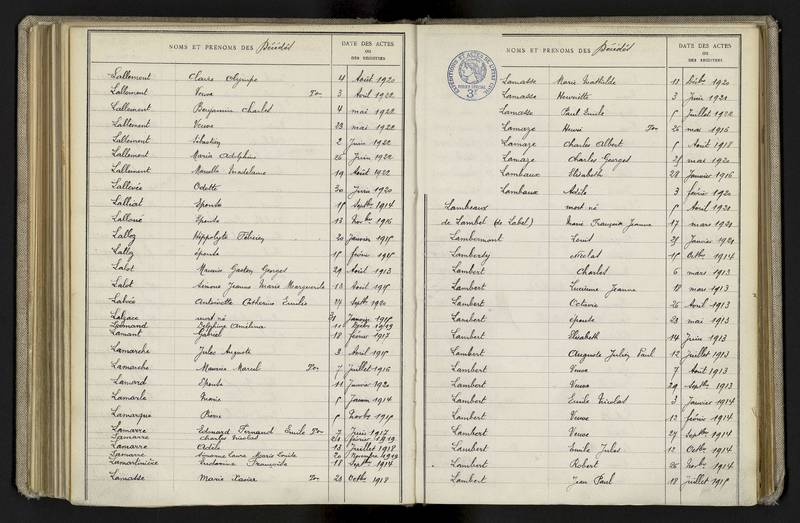 NOMS ET PRENOMS DES Décédés
DATE DES ACTES
OU
DES REGISTRES
Lallement Claire Olympe 4 Août 1920
Lallement Veuve Ton 3 Avril 1922
Lallement Benjamin Charles 4 mai 1922
Lallement Veuve 23 mai 1922
Lallement Sébastien 2 Juin 1922
Lallement Marie Adolphine 26 Juin 1922
Lallement Marcelle Madeleine 19 Août 1922
Lallevée Odette 30 Juin 1920
Lalliat Epouse 15 Septbre 1914
Lalloué Epouse 13 Novbre 1916
Lalloz Hippolyte 20 Janvier 1915
Lalloz épouse 15 février 1915
Lalot Maurice Gaston Georges 29 Août 1913
Lalot Simone Jeanne Marie Marguerite 13 Août 1915
Antoinette Catherine Emilie 24 Septbre 1920
mort né 31 Janvier 1915
Delphine 11 1919
Lamant Gabriel 18 février 1917
Lamarche Jules Auguste 3 Avril 1915
Lamarche Maurice Marcel Ton 7 Juillet 1916
Lamard Epouse 11 Janvier 1920
Lamarle Marie 5 Janvier 1914
Lamarque Pierre 5 Novbre 1915
Lamarre Edouard Fernand Emile Ton 7 Juin 1917
Lamarre Charles Nicolas 28 février 1919
Lamarre Adèle 13 Juillet 1918
Lamarre Simonne Laure Marie Louise 20 Novembre 1919
Lamartinière Françoise 18 Septbre 1914
Lamasse Marie Xavier Ton 23 Octbre 1918
NOMS ET PRENOMS DES Décédés
DATE DES ACTES
OU
DES REGISTRES
3F
Lamasse Marie Mathilde 13 Décbre 1920
Lamasse Henriette 3 Juin 1921
Lamasse Paul Emile 5 Juillet 1922
Lamaze Henri Ton 26 mai 1916
Lamaze Charles Albert 5 Août 1918
Lamaze Charles Georges 25 mai 1920
Lambaux Elisabeth 28 Janvier 1916
Lambaux Adèle 3 février 1920
Lambeaux mort né 5 Avril 1920
de Lambel (de Label) Marie Françoise Jeanne 17 mars 1920
Lambermont Louis 25 Janvier 1921
Nicolas 15 Octbre 1914
Lambert Charles 6 mars 1913
Lambert Lucienne Jeanne 18 mars 1913
Lambert Octavie 26 Avril 1913
Lambert épouse 23 mai 1913
Lambert Elisabeth 14 Juin 1913
Lambert Auguste Julien Paul 12 Juillet 1913
Lambert Veuve 7 Août 1913
Lambert Veuve 29 Septbre 1913
Lambert Emile Nicolas 3 Janvier 1914
Lambert Veuve 12 février 1914
Lambert Veuve 27 Septbre 1914
Lambert Emile Jules 12 Octbre 1914
Lambert Robert 26 Novbre 1914
Lambert Jean Paul 18 Juillet 1915